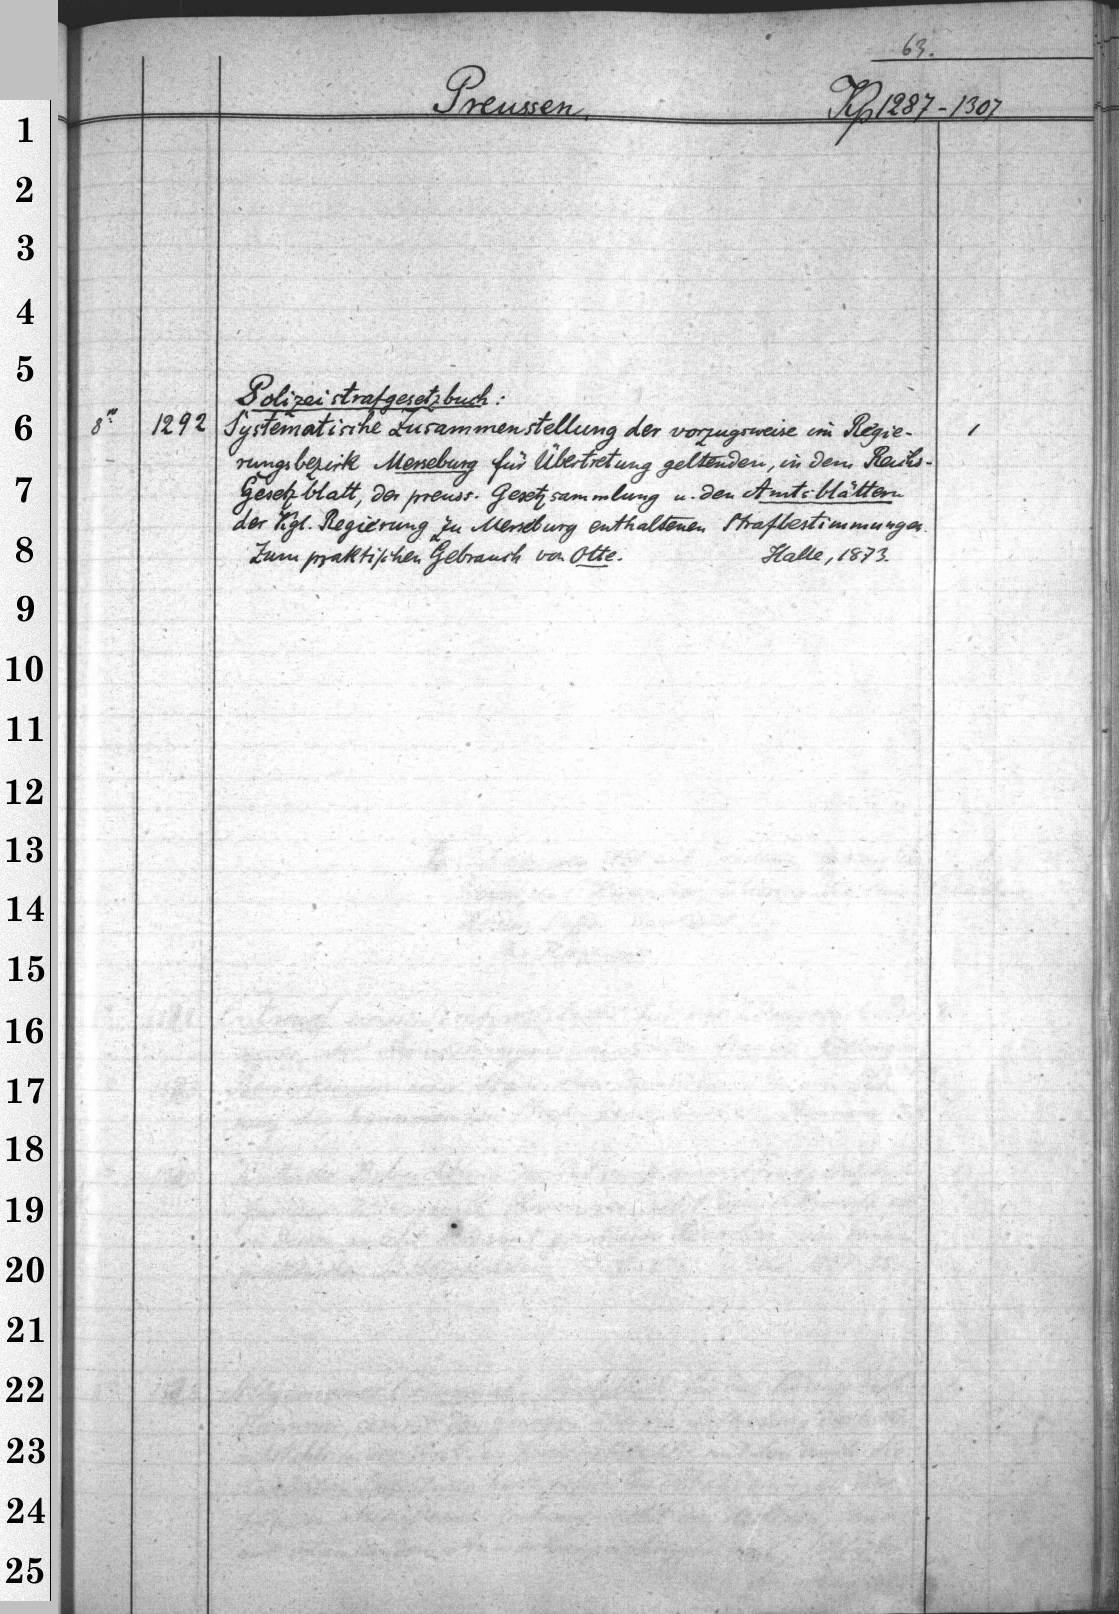 63.
Preussen. Kp 1287-1307
1
2
3
4
5
Polizeistrafgesetzbuch:
6 8° 1292 Systematische Zusammenstellung der vorzugsweise im Regie- 1
rungsbezirk Merseburg für Übertretung geltenden, in dem Reichs-
7 Gesetzblatt, der preuss. Gesetzsammlung u. den Amtsblättern
der Kgl. Regierung zu Merseburg enthaltenen Strafbestimmungen.
8 Zum praktischen Gebrauch von Otte. Halle, 1873.
9
10
11
12
13
14
15
16
17
18
19
20
21
22
23
24
25